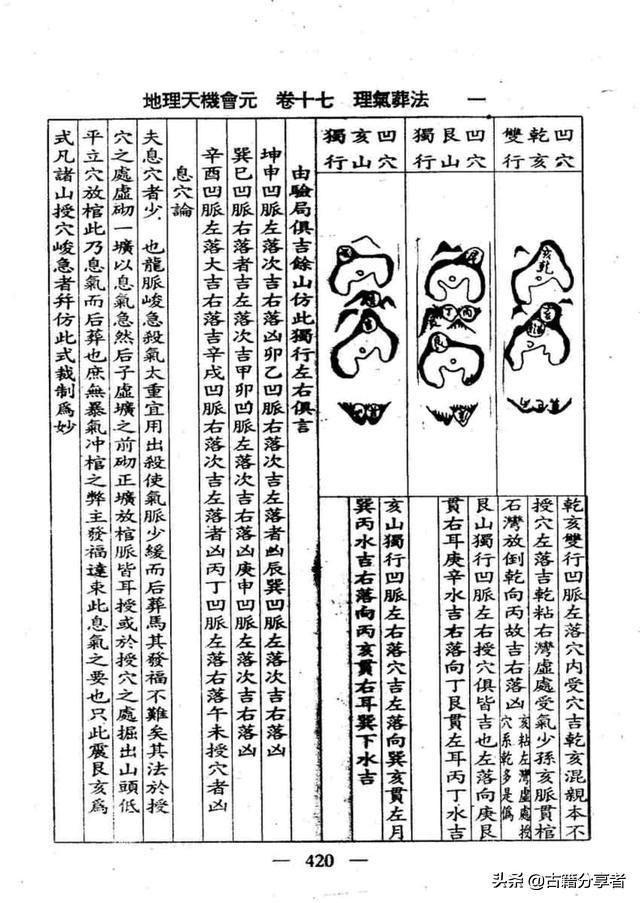 地理天機會元　卷十七　理氣葬法　一
凹穴乾亥雙行
凹穴艮山獨行
凹穴亥山獨行
乾亥雙行凹脈左落穴內受穴吉乾亥混親本不
授穴左落吉乾粘右灣虛處受氣少孫亥脈貫棺
石灣放倒乾向丙故吉右落凶亥粘左灣虛處授穴系乾多是偽
艮山獨行凹脈左右授穴俱皆吉也左落向庚艮
貫右耳庚辛水吉右落向丁艮貫左耳丙丁水吉
亥山獨行凹脈左右落穴吉左落向巽亥貫左月
巽丙水吉右落向丙亥貫右耳巽下水吉
由驗局俱吉餘山仿此獨行左右俱言
坤申凹脈左落次吉右落凶卯乙凹脈右落次吉左落者凶辰巽凹脈左落次吉右落凶
巽巳凹脈右落者吉左落次吉甲卯凹脈左落次吉右落凶庚申凹脈左落次吉右落凶
辛酉凹脈左落大吉右落吉辛戌凹脈右落次吉左落者凶丙丁凹脈左落右落午未授穴者凶
息穴論
夫息穴者少也龍脈峻急殺氣太重宜用出殺使氣脈少緩而后葬馬其發福不難矣其法於授
穴之處虛砌一壙以息氣急然后子虛壙之前砌正壙放棺脈皆耳授或於授穴之處掘出山頭低
平立穴放棺此乃息氣而后葬也庶無暴氣冲棺之弊主發福達束此息氣之要也只此震艮亥為
式凡諸山授穴峻急者幷仿此式裁制為妙
— 420 —
头条 @古籍分享者